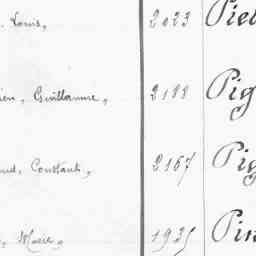 . Louis, 2023 Piel
ien, Guillaume, 2188 Pig
und, Constant, 2167 Pig
, Marie, 1925 Pin